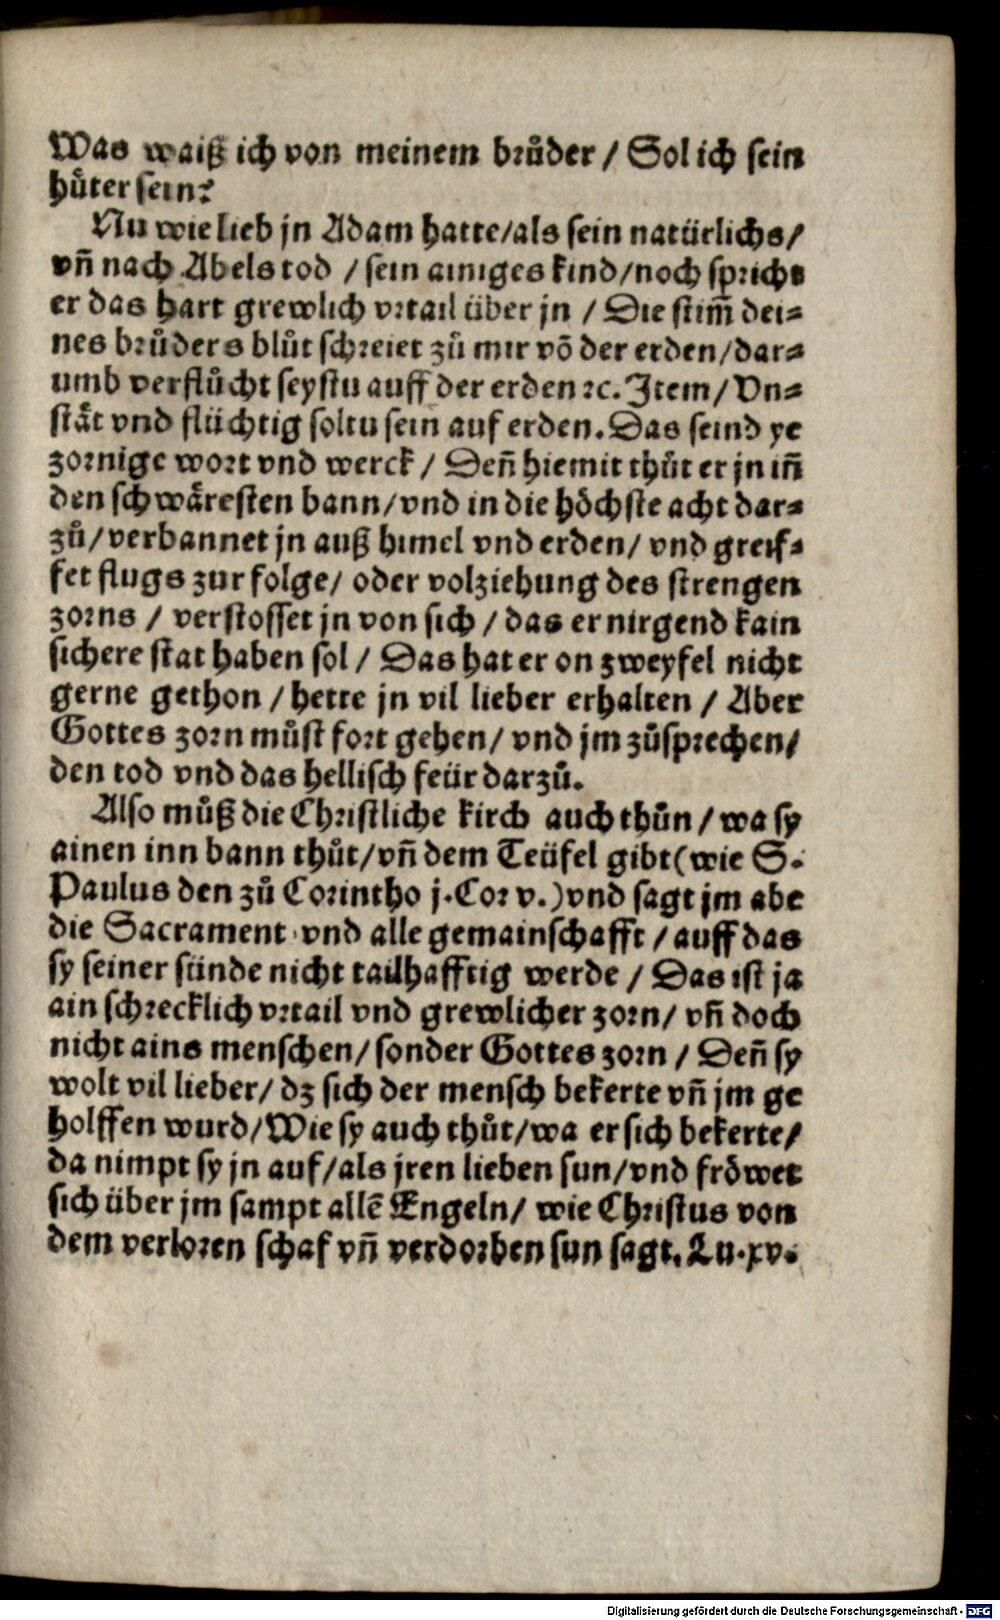 Was waiß ich von meinem brůder / Sol ich sein
hůter sein?
Nu wie lieb jn Adam hatte/als sein natürlichs/
vñ nach Abels tod / sein ainiges kind/noch spricht
er das hart grewlich vrtail über jn / Die stim̃ dei⸗
nes brůders blůt schreiet zů mir võ der erden/dar⸗
umb verflůcht seystu auff der erden ꝛc. Item/ Vn⸗
stät vnd flüchtig soltu sein auf erden. Das seind ye
zornige wort vnd werck / Deñ hiemit thůt er jn iñ
den schwäresten bann/vnd in die höchste acht dar⸗
zů/verbannet jn auß himel vnd erden/ vnd greif⸗
fet flugs zur folge/ oder volziehung des strengen
zorns / verstosset jn von sich / das er nirgend kain
sichere stat haben sol / Das hat er on zweyfel nicht
gerne gethon / hette jn vil lieber erhalten / Aber
Gottes zorn můst fort gehen/ vnd jm zůsprechen/
den tod vnd das hellisch feür darzů.
Also můß die Christliche kirch auch thůn / wa sy
ainen inn bann thůt/vñ dem Teüfel gibt(wie S.
Paulus den zů Corintho j.Cor v.)vnd sagt jm abe
die Sacrament vnd alle gemainschafft / auff das
sy seiner sünde nicht tailhafftig werde / Das ist ja
ain schrecklich vrtail vnd grewlicher zorn/ vñ doch
nicht ains menschen/sonder Gottes zorn / Deñ sy
wolt vil lieber/ dz sich der mensch bekerte vñ jm ge
holffen wurd/Wie sy auch thůt/wa er sich bekerte/
da nimpt sy jn auf/als jren lieben sun/vnd fröwet
sich über jm sampt allẽ Engeln/ wie Christus von
dem verloren schaf vñ verdorben sun sagt. Lu.xv.
Digitalisierung gefördert durch die Deutsche Forschungsgemeinschaft - DFG